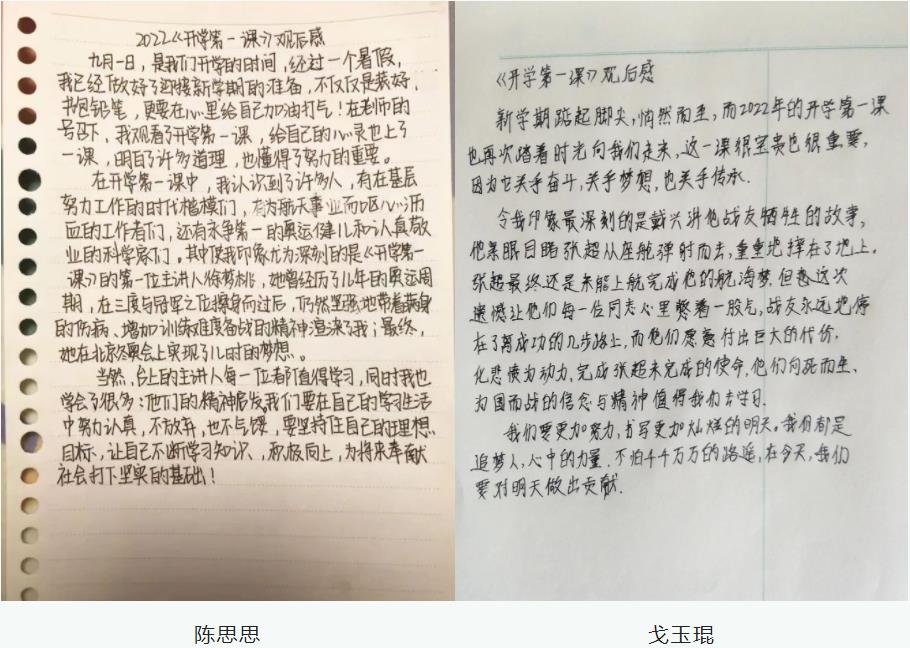 2022《开学第一课》观后感
九月一日，是我们开学的时间，经过一个暑假，
我已经做好了迎接新学期的准备，不仅仅是装好
书包铅笔，更要在心里给自己加油打气！在老师的
号召下，我观看了开学第一课，给自己的心灵也上了
一课，明白了许多道理，也懂得了努力的重要。
在开学第一课中，我认识到了许多人，有在基层
努力工作的时代楷模们，有为航天事业而呕心沥
血的工作者们，还有永争第一的奥运健儿和认真敬
业的科学家们。其中使我印象尤为深刻的是《开学第一
课》的第一位主讲人徐梦桃，她曾经历了几年的奥运周
期，在三度与冠军之位擦身而过后，仍然坚强地带着满身
的伤病、增加训练难度备战的精神渲染了我；最终，
她在北京冬奥会上实现了儿时的梦想。
当然，台上的主讲人每一位都值得学习，同时我也
学会了很多：他们的精神启发我们要在自己的学习生活
中努力认真，不放弃，也不气馁，要坚持住自己的理想
目标，让自己不断学习知识、积极向上，为将来奉献
社会打下坚实的基础！
陈思思
《开学第一课》观后感
新学期踮起脚尖，悄然而至，而2022年的开学第一课
也再次踏着时光向我们走来，这一课很宝贵也很重要，
因为它关乎奋斗，关乎梦想，也关乎传承.
令我印象最深刻的是戴兴讲他战友牺牲的故事，
他亲眼目睹张超从座舱弹射而去，重重地摔在了地上，
张超最终还是未能上舰完成他的航海梦.但也这次
遗憾让他们每一位同志心里憋着一股气，战友永远地停
在了离成功的几步路上，而他们愿意付出巨大的代价，
化悲愤为动力，完成张超未完成的使命，他们向死而生、
为国而战的信念与精神值得我们去学习.
我们要更加努力，书写更加灿烂的明天。我们都是
追梦人，心中的力量，不怕千千万万的路遥，在今天，我们
要对明天做出贡献.
戈玉琨